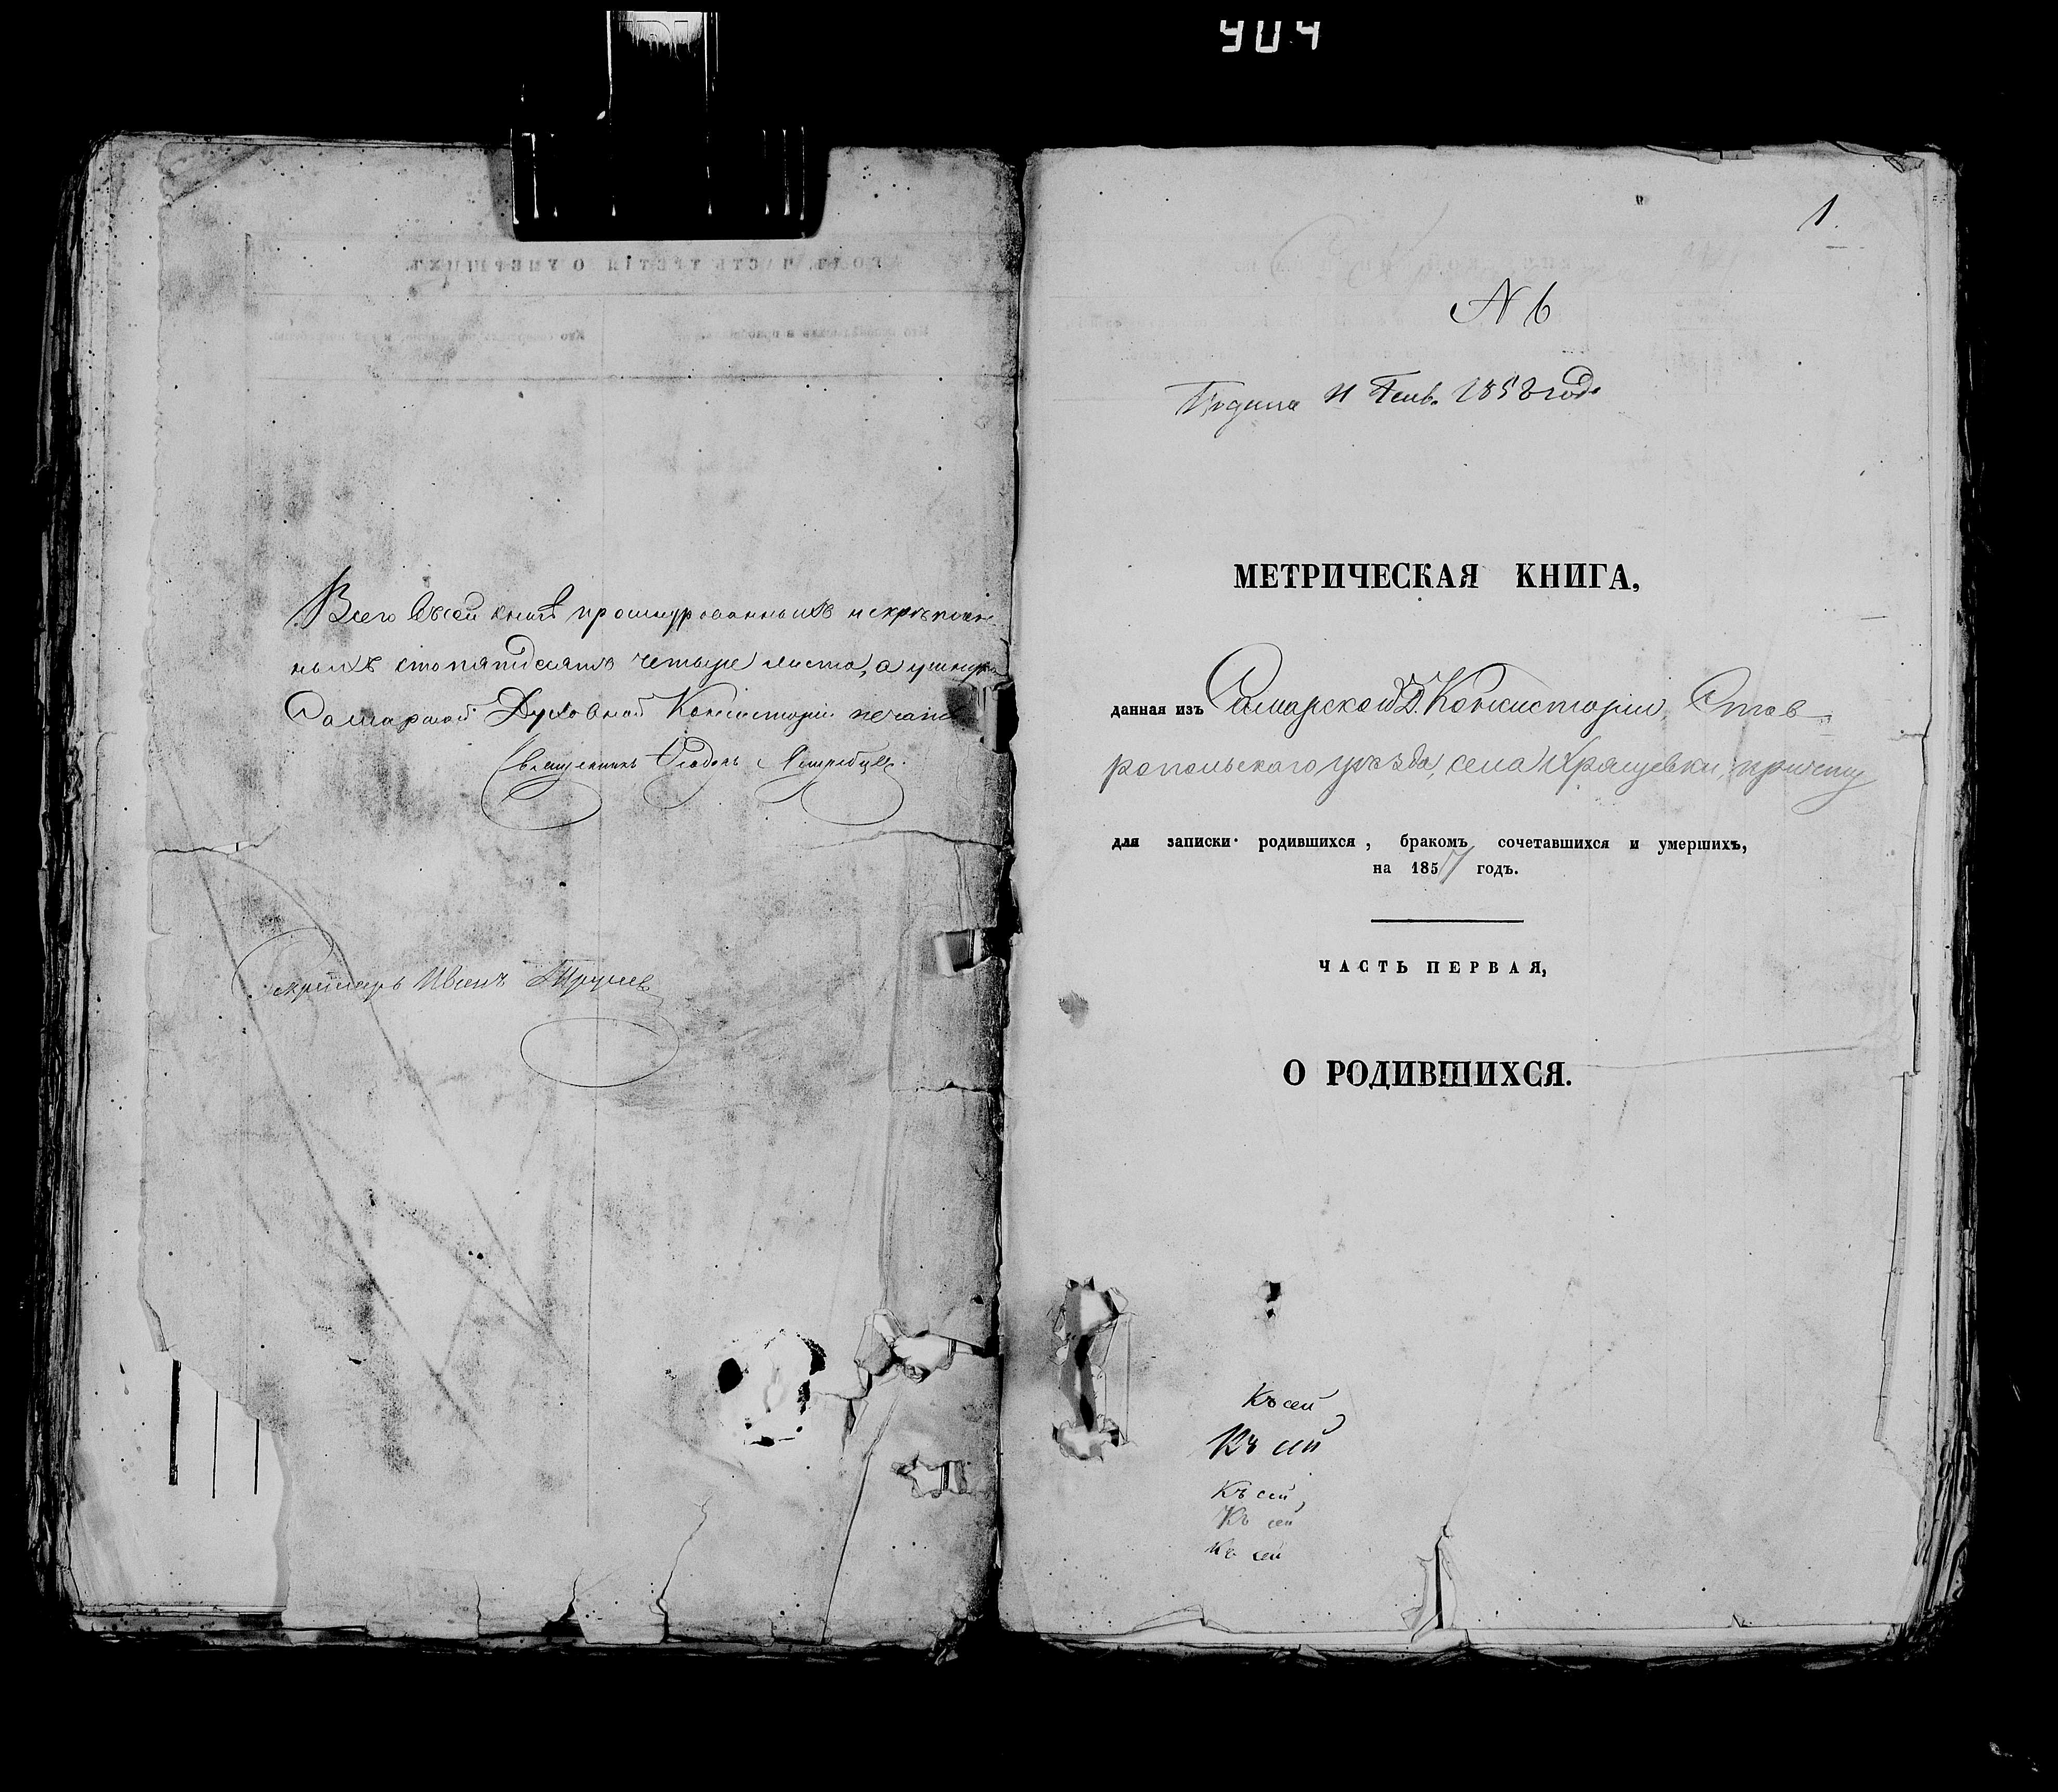 404
Всего въ сей книгѣ прошнурованныхъ и скрѣплен-
ныхъ сто пятьдесятъ четыре листа, а у шнура
Самарской Духовной Консисторіи печать
Священникъ
Секретарь Иванъ
1.
N 6
Подана 11 Генв. 1858 года
МЕТРИЧЕСКАЯ КНИГА,
данная изъ Самарской Д. Консисторіи, Став-
ропольскаго уѣзда, села Хрящевки, причту
для записки родившихся, бракомъ сочетавшихся и умершихъ,
на 1857 годъ.
ЧАСТЬ ПЕРВАЯ,
О РОДИВШИХСЯ.
Къ сей
Къ сей
Къ сей
Къ сей
Къ сей